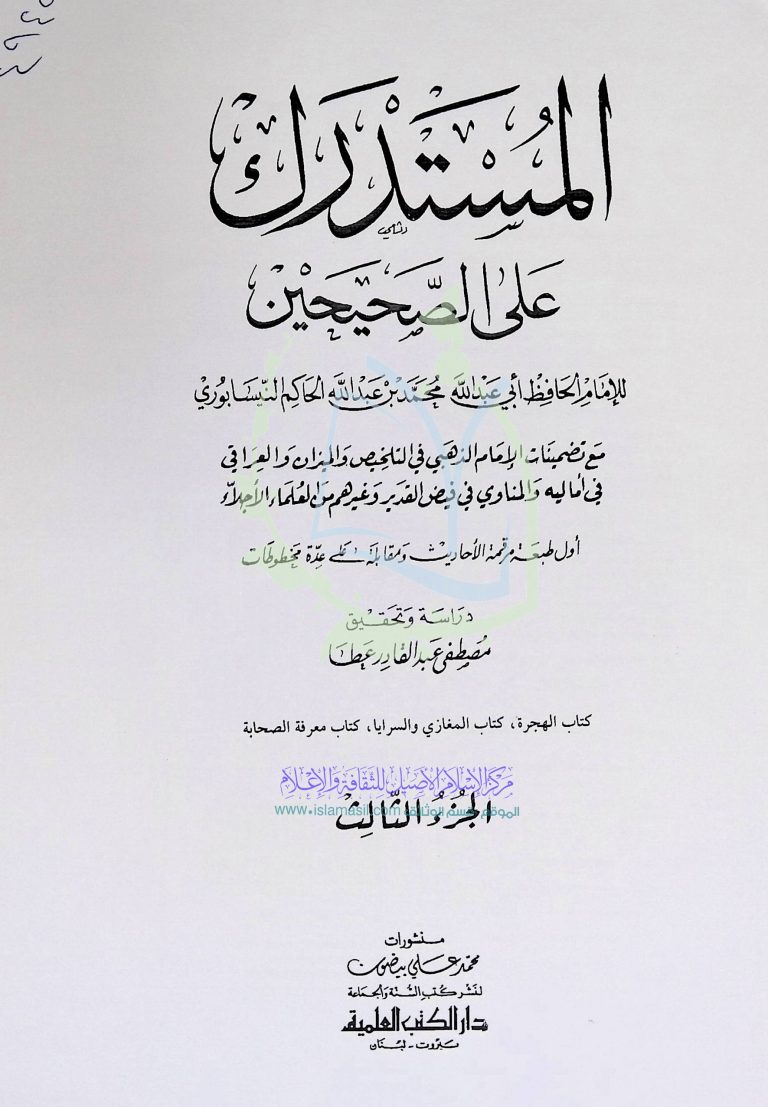 المُسْتَدْرَك
عَلَى الصَّحِيحَيْن
للإمَامِ الحَافِظ أبي عَبْدالله مُحَمَّد بْن عَبْدالله الحَاكِم النّيسَابُوريْ
مَع تَضمينَات الإمَام الذهَبي في التلخيص والميزان والعِرَاقي
في أماليه والمناوي في فيض القدير وَغيرهم مِنَ العُلمَاء الأجِلاَّء
أول طبعَة مرقمة الأحاديث وَمقابلة عَلى عِدّة مَخطوطَات
درَاسَة وَتحقيق
مُصْطفى عَبد القادِر عَطا
كتاب الهجرة، كتاب المغازي والسرايا، كتاب معرفة الصحابة
مركز الإسلام الأصيل للثقافة والإعلام
الجُزءُ الثَّالِث
الموقع قسم الوثائق www.islamasil.com
منشورات
محمّد عَلي بيضون
لنَشر كُتبِ السُّنَّة وَالجمَاعَة
دار الكتب العلمية
بَيروت - لبنَان